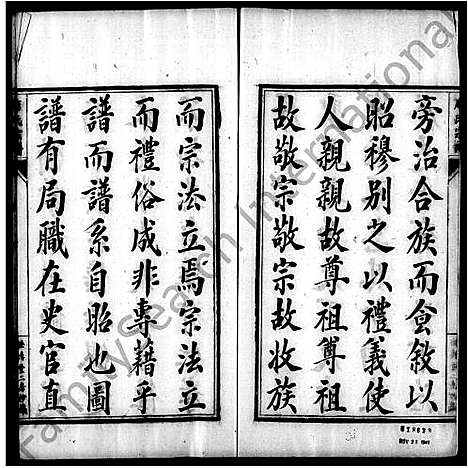 旁治合族而食敘以
昭穆別之以禮義使
人親親故尊祖尊祖
故敬宗敬宗故收族
而宗法立焉宗法立
而禮俗成非專藉乎
譜而譜系自昭也圖
譜有局職在史官直
FamilySearch International